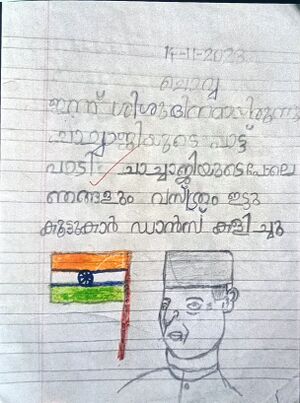 14-11-2023
ചൊവ്വ
ഇന്ന് ശിശുദിനമായിരുന്നു
ചാച്ചാജിയുടെ പാട്ട്
പാടി. ചാച്ചാജിയുടെപോലെ
ഞങ്ങളും വസ്ത്രം ഇട്ടു
കൂട്ടുകാർ ഡാൻസ് കളിച്ചു